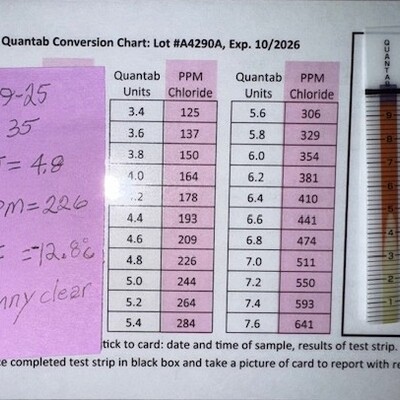 Quantab Conversion Chart: Lot #A4290A, Exp. 10/2026
9-25
35
= 4.8
PM = 226
= -12.8°C
nny clear
Quantab Units PPM Chloride
3.4 125
3.6 137
3.8 150
4.0 164
.2 178
4.4 193
4.6 209
4.8 226
5.0 244
5.2 264
5.4 284
Quantab Units PPM Chloride
5.6 306
5.8 329
6.0 354
6.2 381
6.4 410
6.6 441
6.8 474
7.0 511
7.2 550
7.4 593
7.6 641
QUANTAB
9
8
7
6
5
4
3
2
1
tick to card: date and time of sample, results of test strip.
ce completed test strip in black box and take a picture of card to report with re